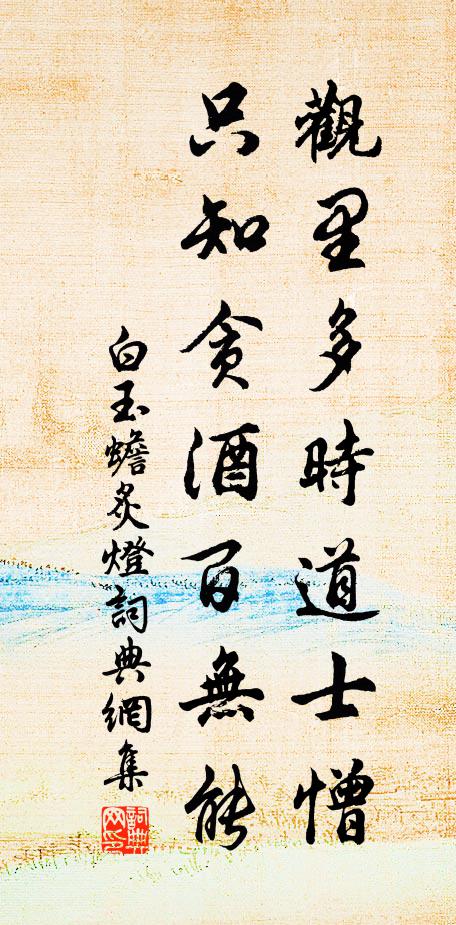 觀里多時道士憎
只知貪酒百無能
白玉蟾炙燈詞典網集
詞典网印